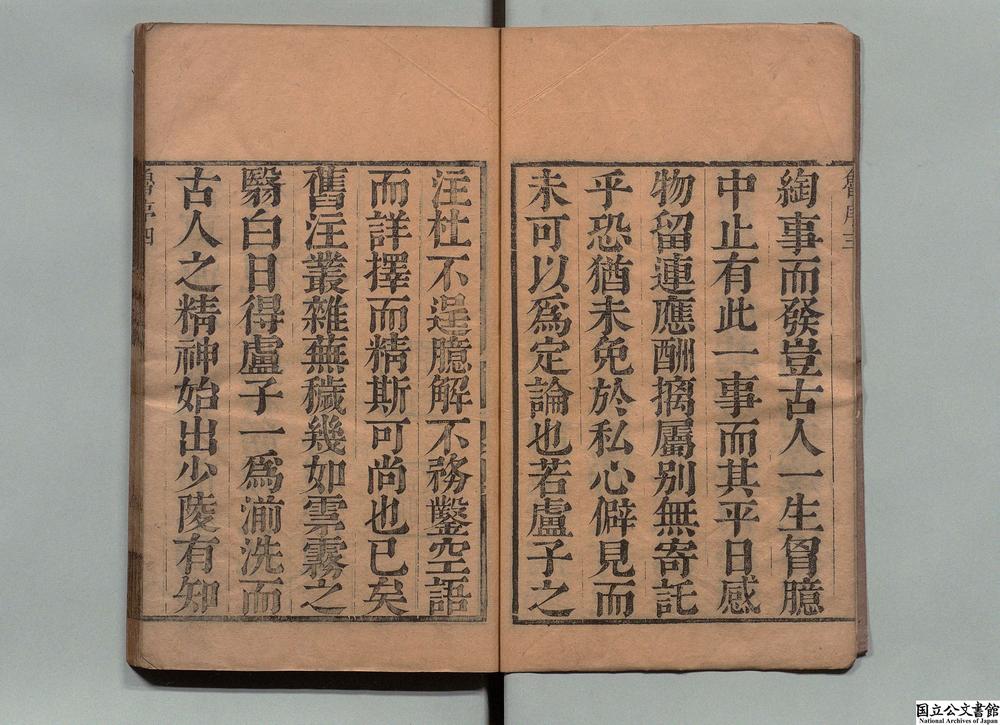 綯事而發豈古人一生胷臆
中止有此一事而其平日感
物留連應酬摛屬別無寄託
乎恐猶未免於私心僻見而
未可以爲定論也若盧子之
注杜不逞臆解不務鑿空語
而詳擇而精斯可尚也已矣
舊注叢雜蕪穢幾如雲霧之
翳白日得盧子一爲湔洗而
古人之精神始出少陵有知
国立公文書館
National Archives of Japan